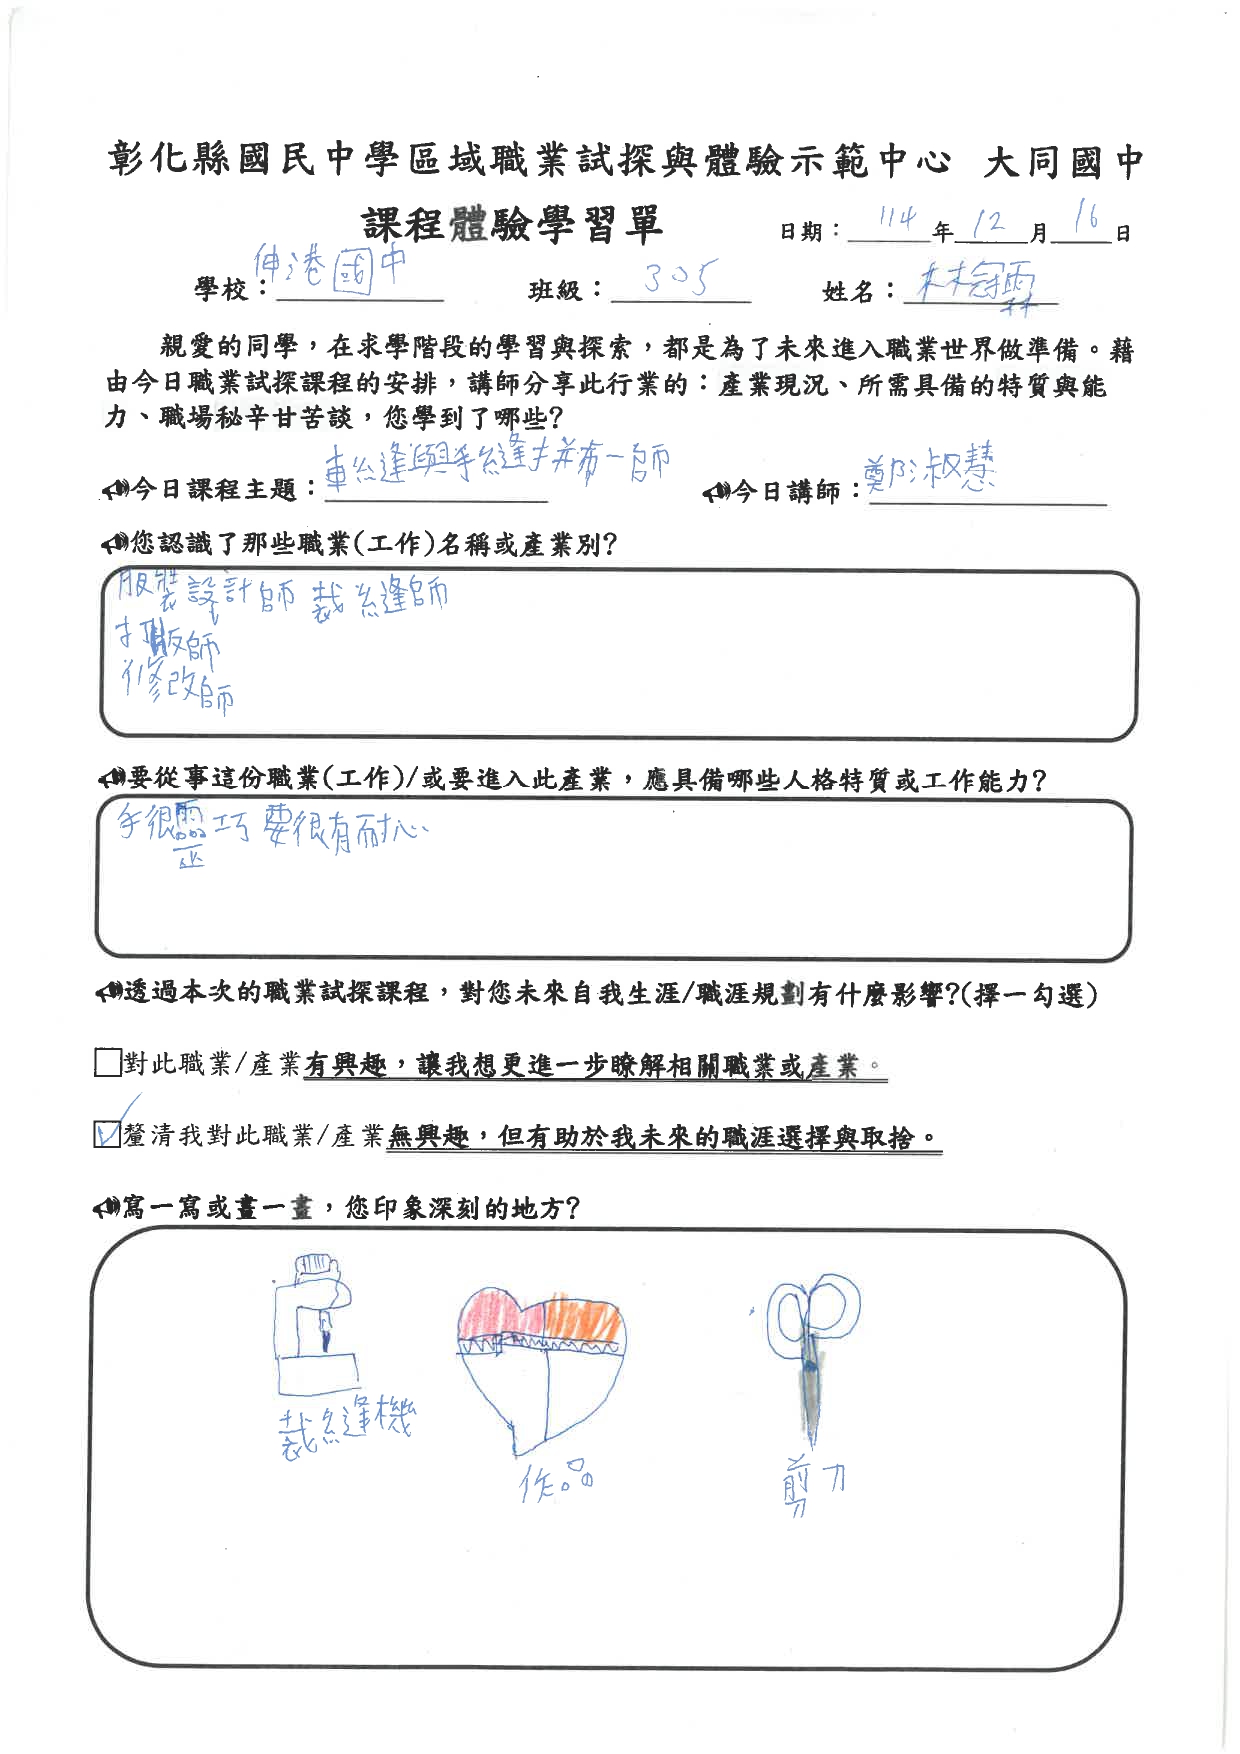 彰化縣國民中學區域職業試探與體驗示範中心 大同國中
課程體驗學習單 日期：114年12月16日
學校：伸港國中 班級：305 姓名：林冠霖
親愛的同學，在求學階段的學習與探索，都是為了未來進入職業世界做準備。藉
由今日職業試探課程的安排，講師分享此行業的：產業現況、所需具備的特質與能
力、職場秘辛甘苦談，您學到了哪些?
今日課程主題：車縫與手縫拼布一師 今日講師：鄭淑慧
您認識了那些職業(工作)名稱或產業別?
服裝設計師 裁縫師
打版師
修改師
要從事這份職業(工作)/或要進入此產業，應具備哪些人格特質或工作能力?
手很靈巧 要很有耐心
透過本次的職業試探課程，對您未來自我生涯/職涯規劃有什麼影響?(擇一勾選)
□對此職業/產業有興趣，讓我想更進一步瞭解相關職業或產業。
☑釐清我對此職業/產業無興趣，但有助於我未來的職涯選擇與取捨。
寫一寫或畫一畫，您印象深刻的地方?
裁縫機
作品
剪刀